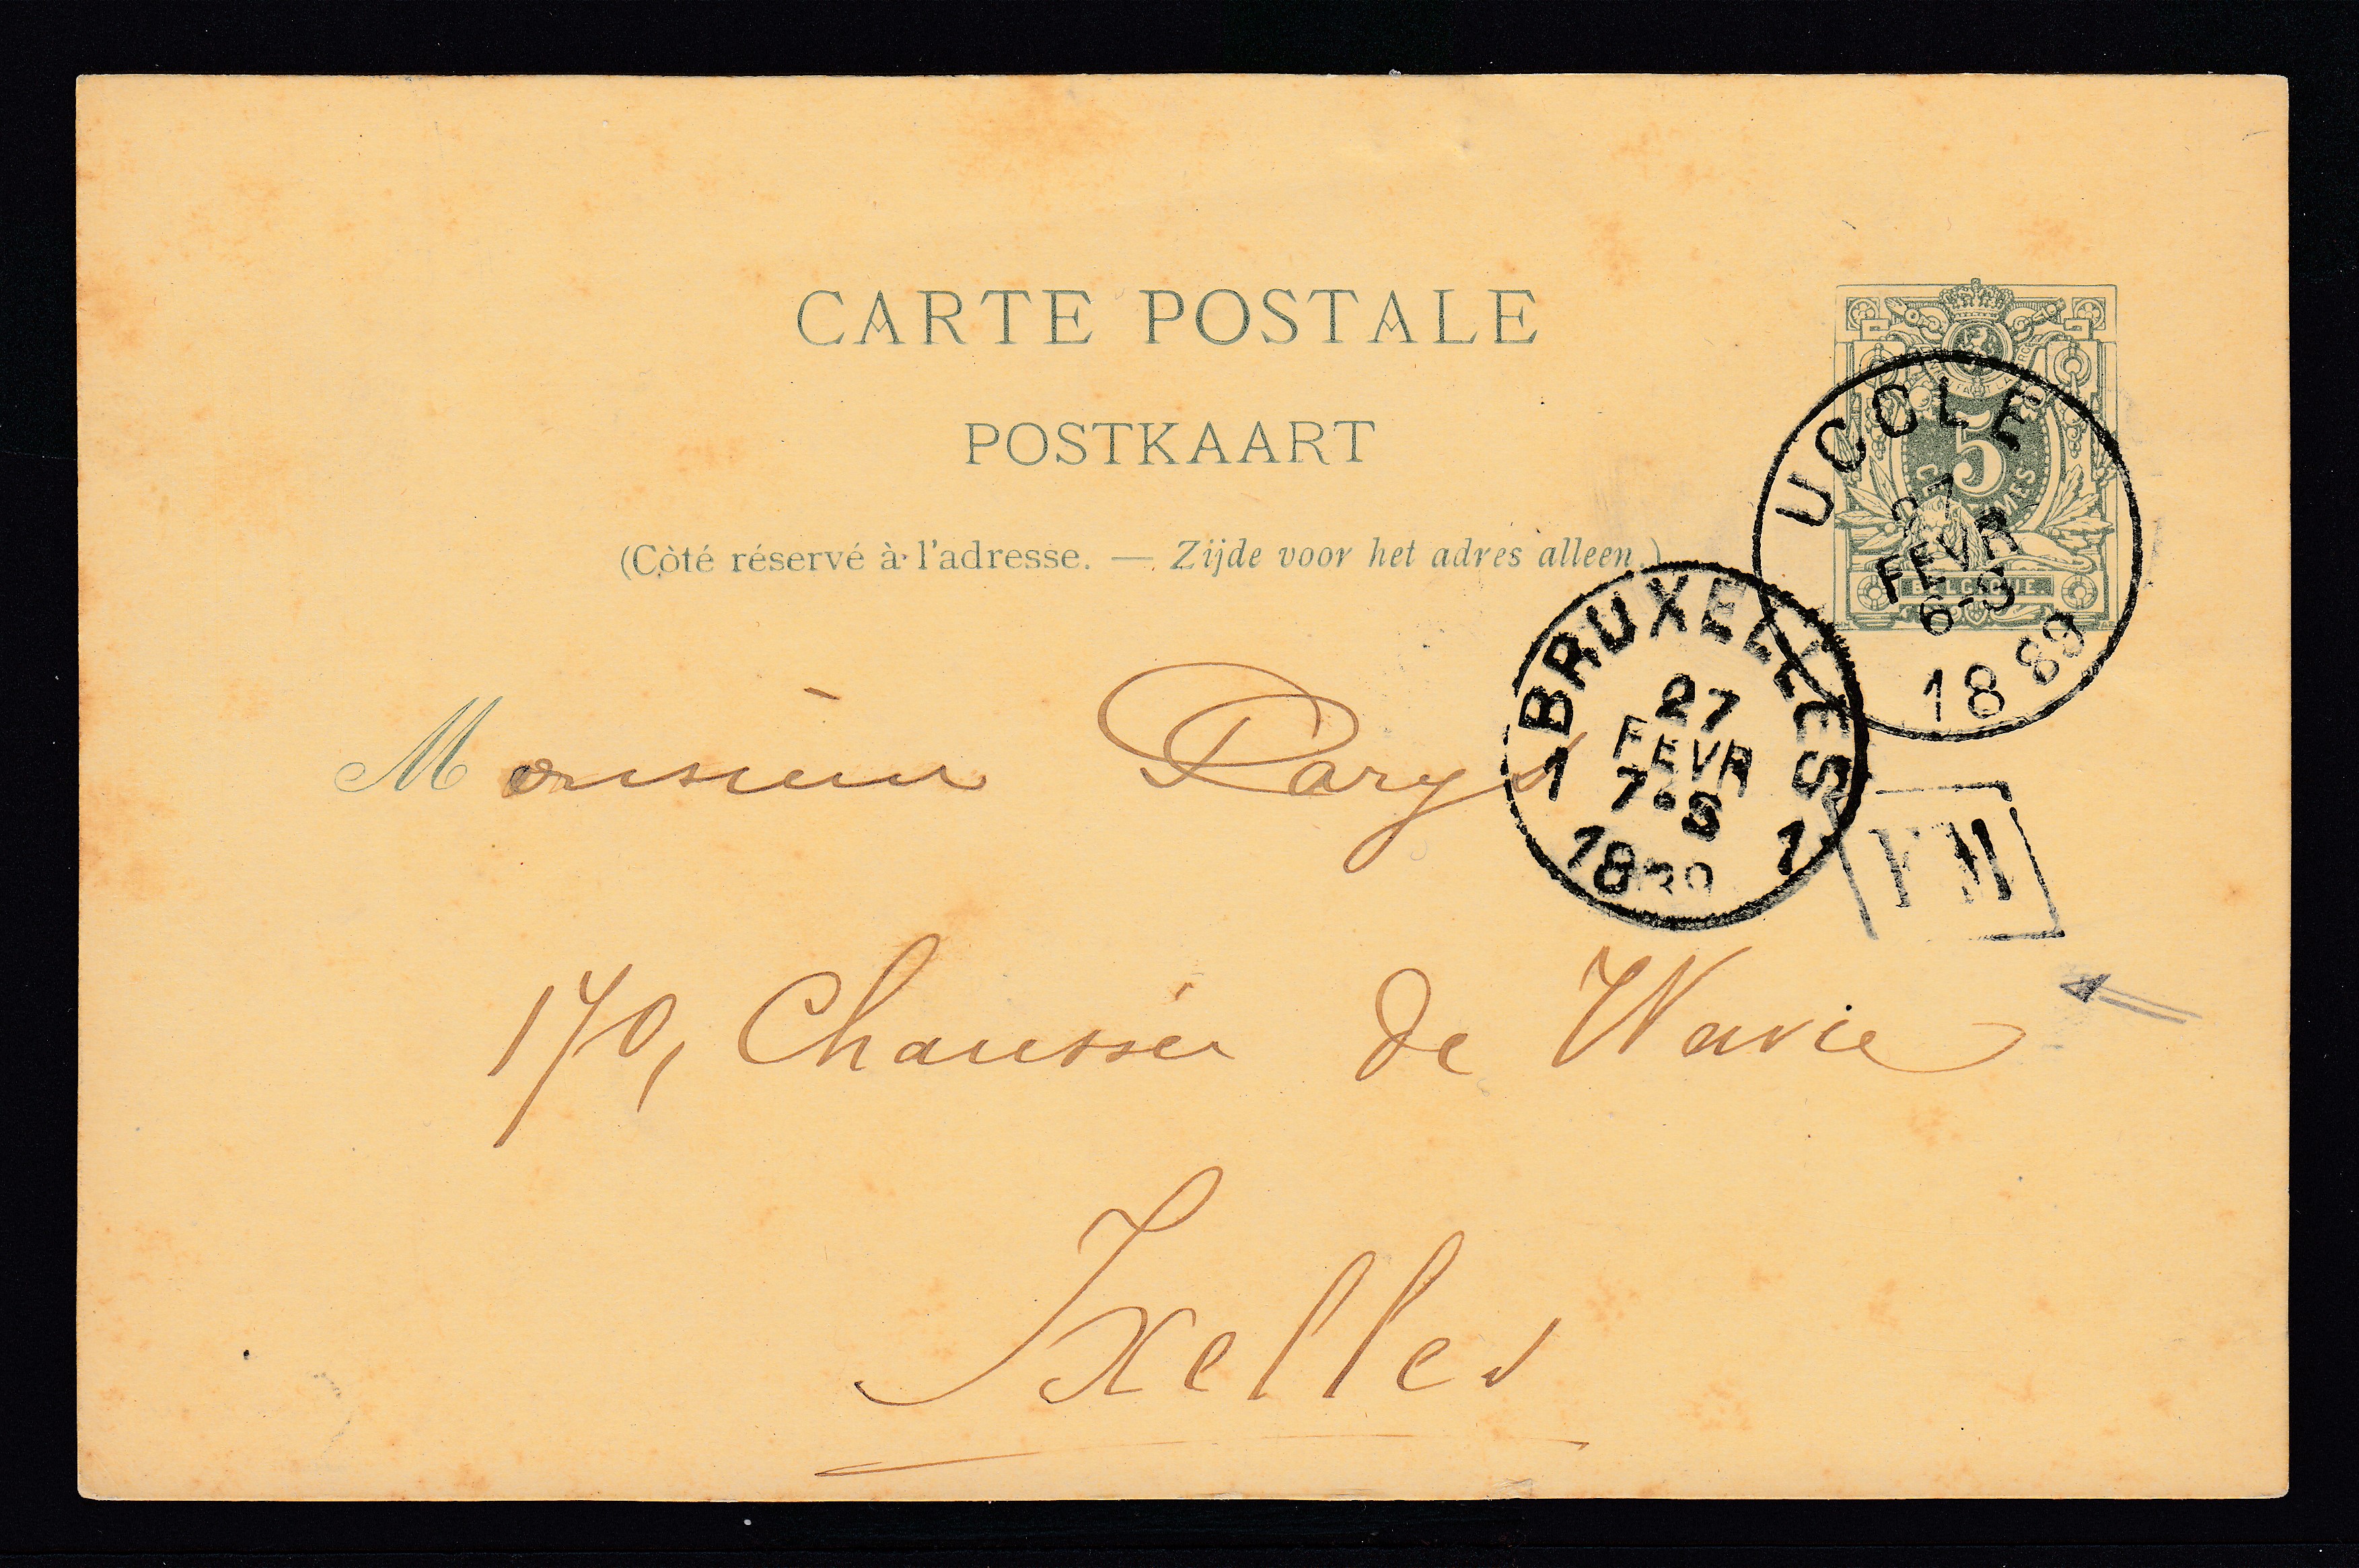 CARTE POSTALE
POSTKAART
(Côté réservé à l'adresse. — Zijde voor het adres alleen.)
5
BELGIQUE
UCCLE
27
FEVR
6-S
1889
BRUXELLES
27
FEVR
7•S
1 1
1889
Monsieur Parys
170, Chaussée de Wavre
Ixelles